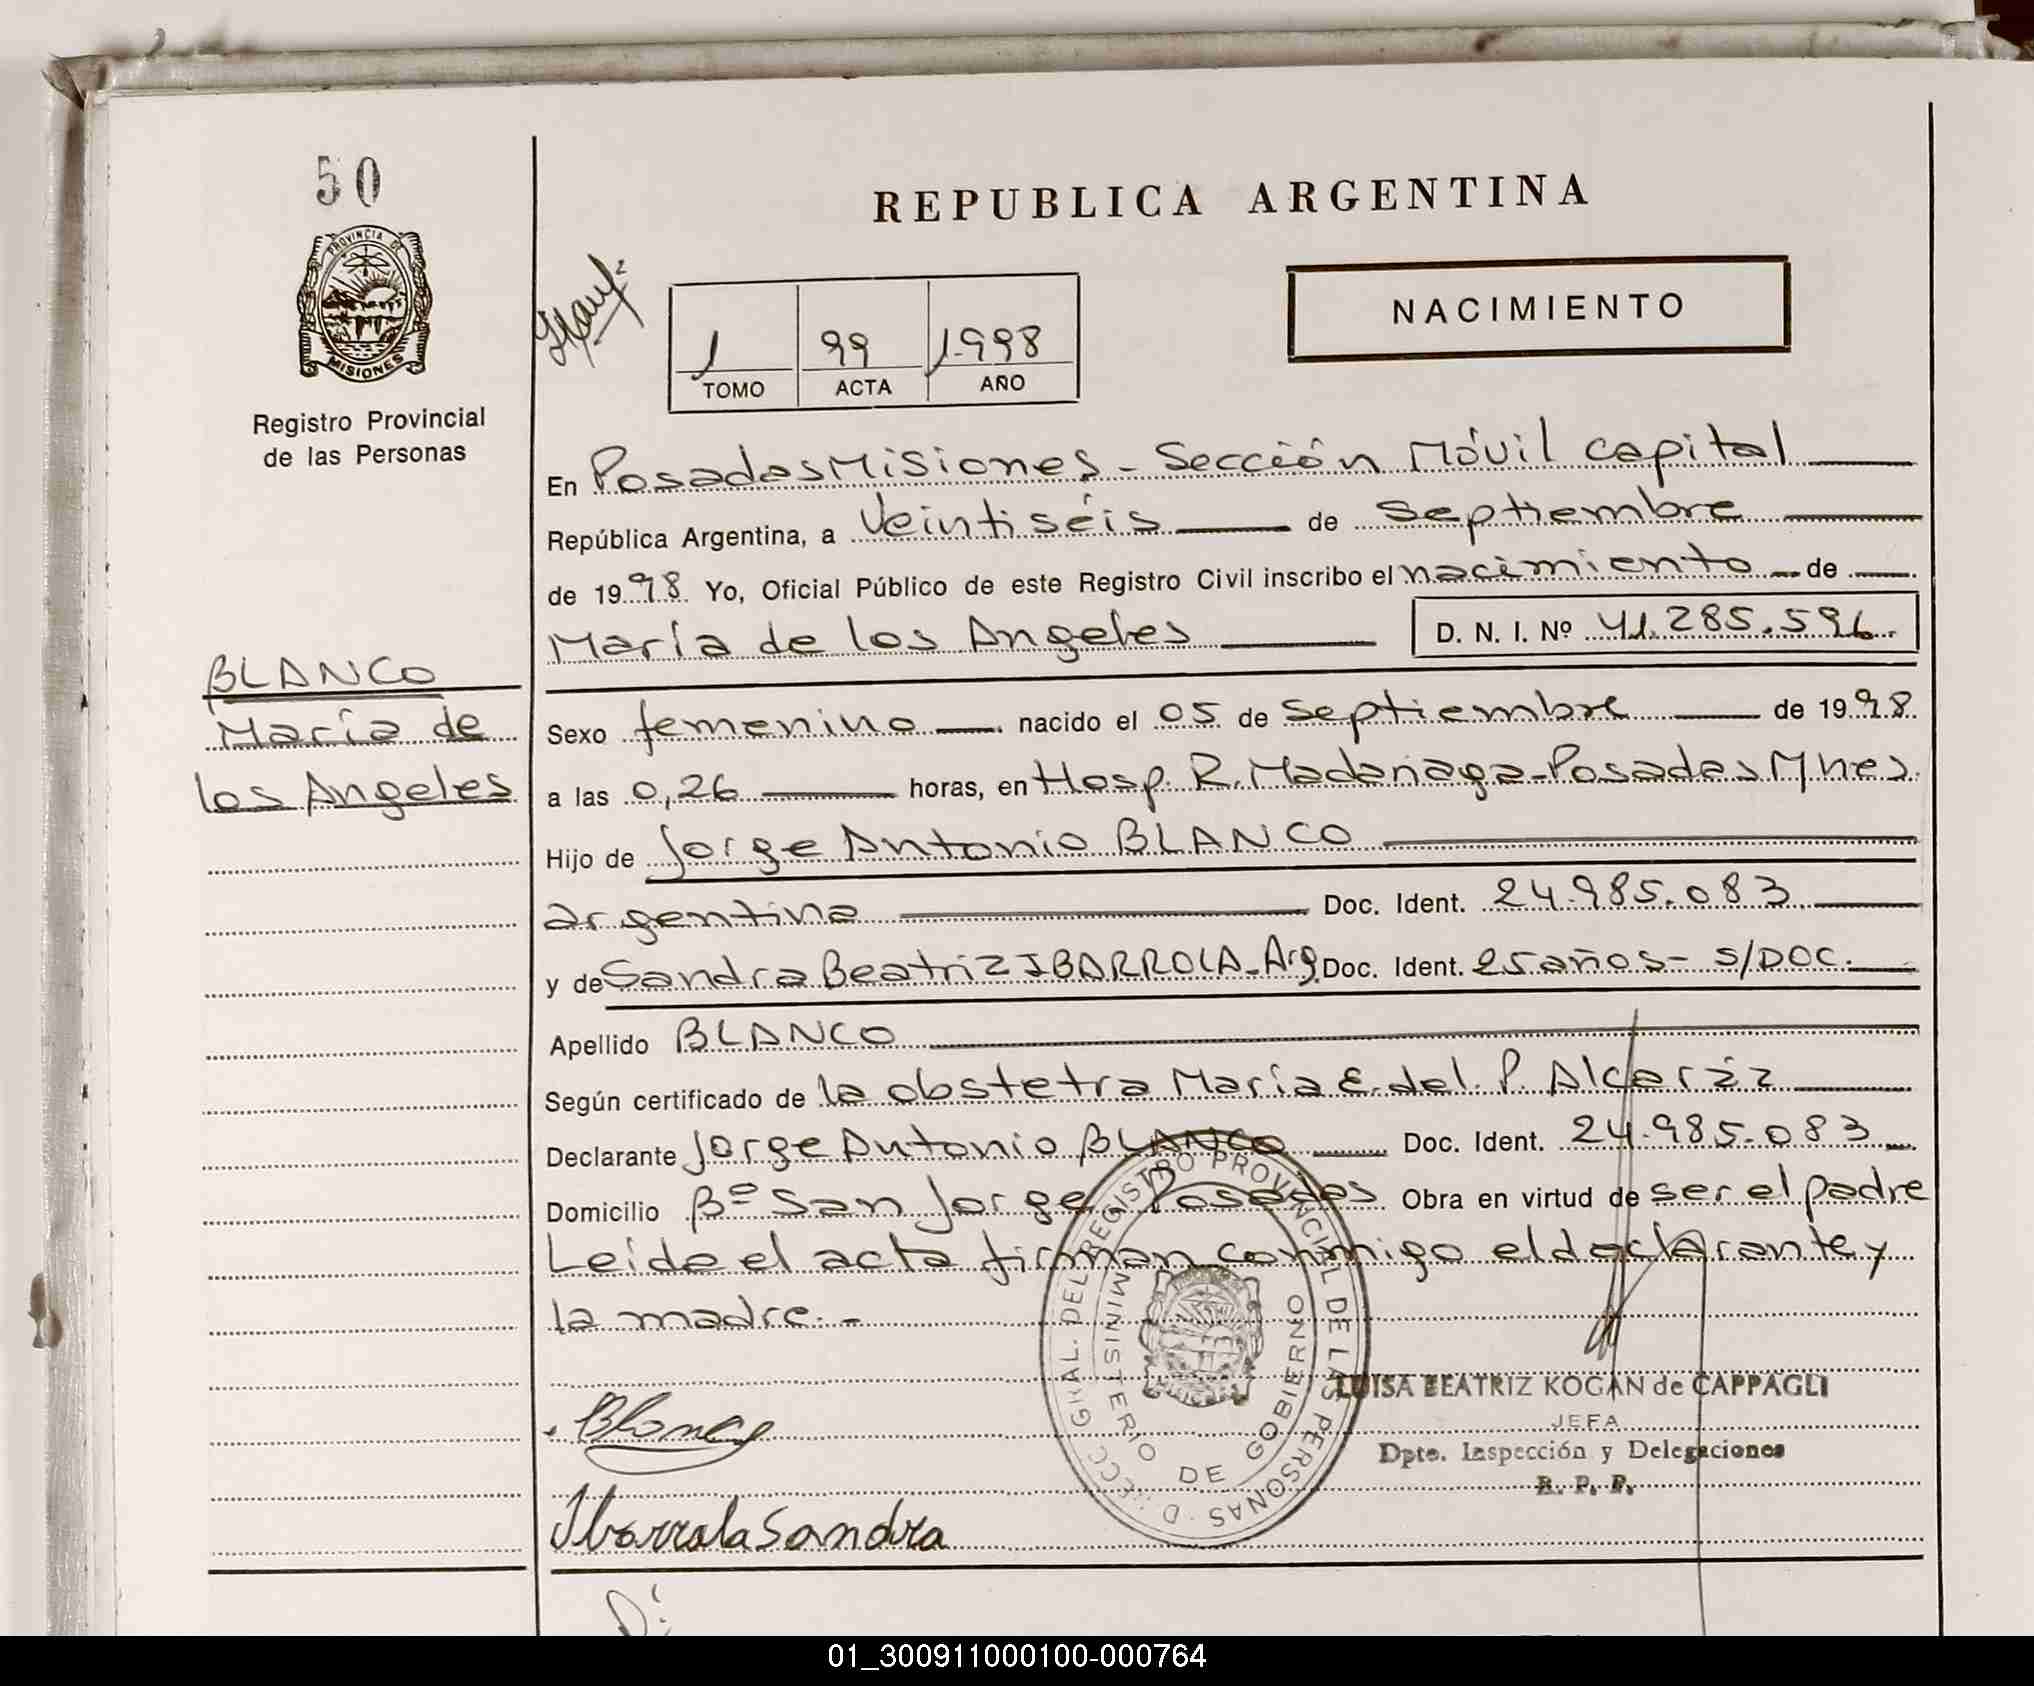 50
REPUBLICA ARGENTINA
PROVINCIA DE
MISIONES
Registro Provincial
de las Personas
1 99 1.998
TOMO ACTA AÑO
NACIMIENTO
En Posadas Misiones - Sección Móvil capital
República Argentina, a Veintiséis de Septiembre
de 1998 Yo, Oficial Público de este Registro Civil inscribo el nacimiento de
María de los Angeles D. N. I. Nº 41.285.596.
BLANCO
María de
los Angeles
Sexo femenino nacido el 05 de Septiembre de 1998.
a las 0,26 horas, en Hosp. R. Madariaga-Posadas Mnes.
Hijo de Jorge Antonio BLANCO
argentina Doc. Ident. 24.985.083
y de Sandra Beatriz IBARROLA-Arg. Doc. Ident. 25 años - s/DOC.
Apellido BLANCO
Según certificado de la obstetra María E. del P. Alcaráz
Declarante Jorge Antonio BLANCO Doc. Ident. 24.985.083
Domicilio Bº San Jorge Posadas Obra en virtud de ser el padre
Leída el acta firman conmigo el declarante y
la madre.-
DIRECC. GRAL. DEL REGISTRO PROVINCIAL DE LAS PERSONAS
MINISTERIO DE GOBIERNO
LUISA BEATRIZ KOGAN de CAPPAGLI
JEFA
Dpto. Inspección y Delegaciones
R. P. P.
Blanco
Ibarrola Sandra
01_300911000100-000764